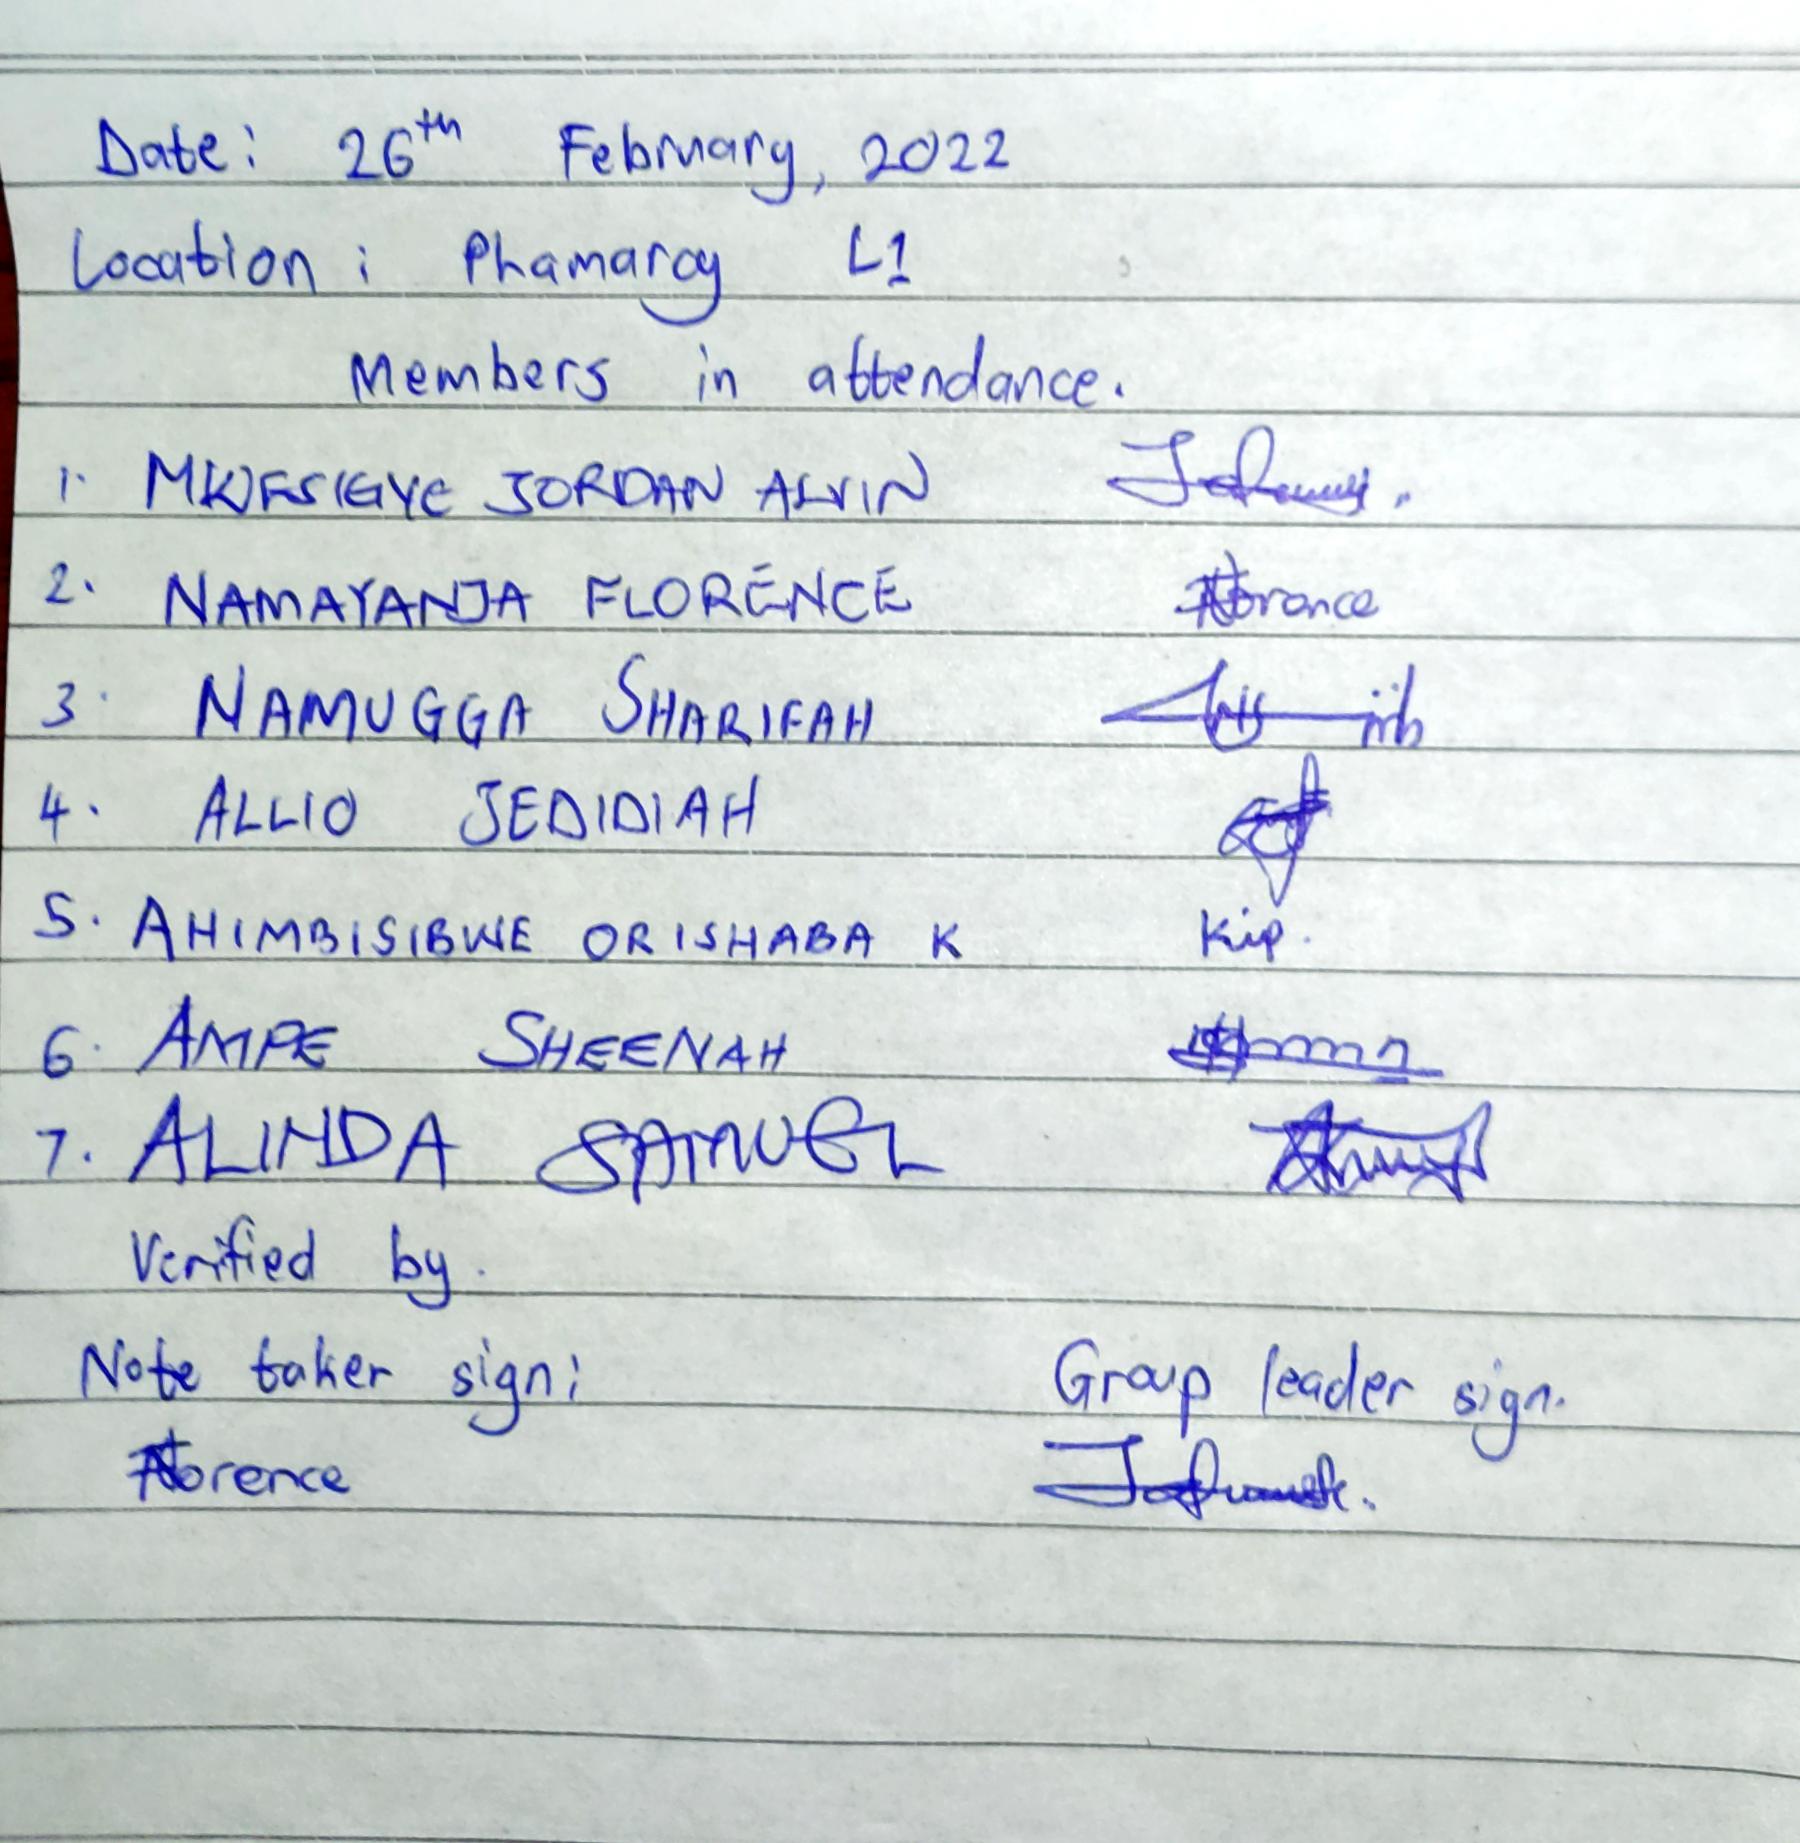 Date: 26th February, 2022
Location: Phamarcy L1
Members in attendance.
1. MKWESIGYE JORDAN ALVIN
2. NAMAYANJA FLORENCE Florence
3. NAMUGGA SHARIFAH
4. ALLIO JEDIDIAH
5. AHIMBISIBWE ORISHABA K Kip.
6. AMPE SHEENAH
7. ALINDA SAMUEL
Verified by.
Note taker sign: Group leader sign.
Florence